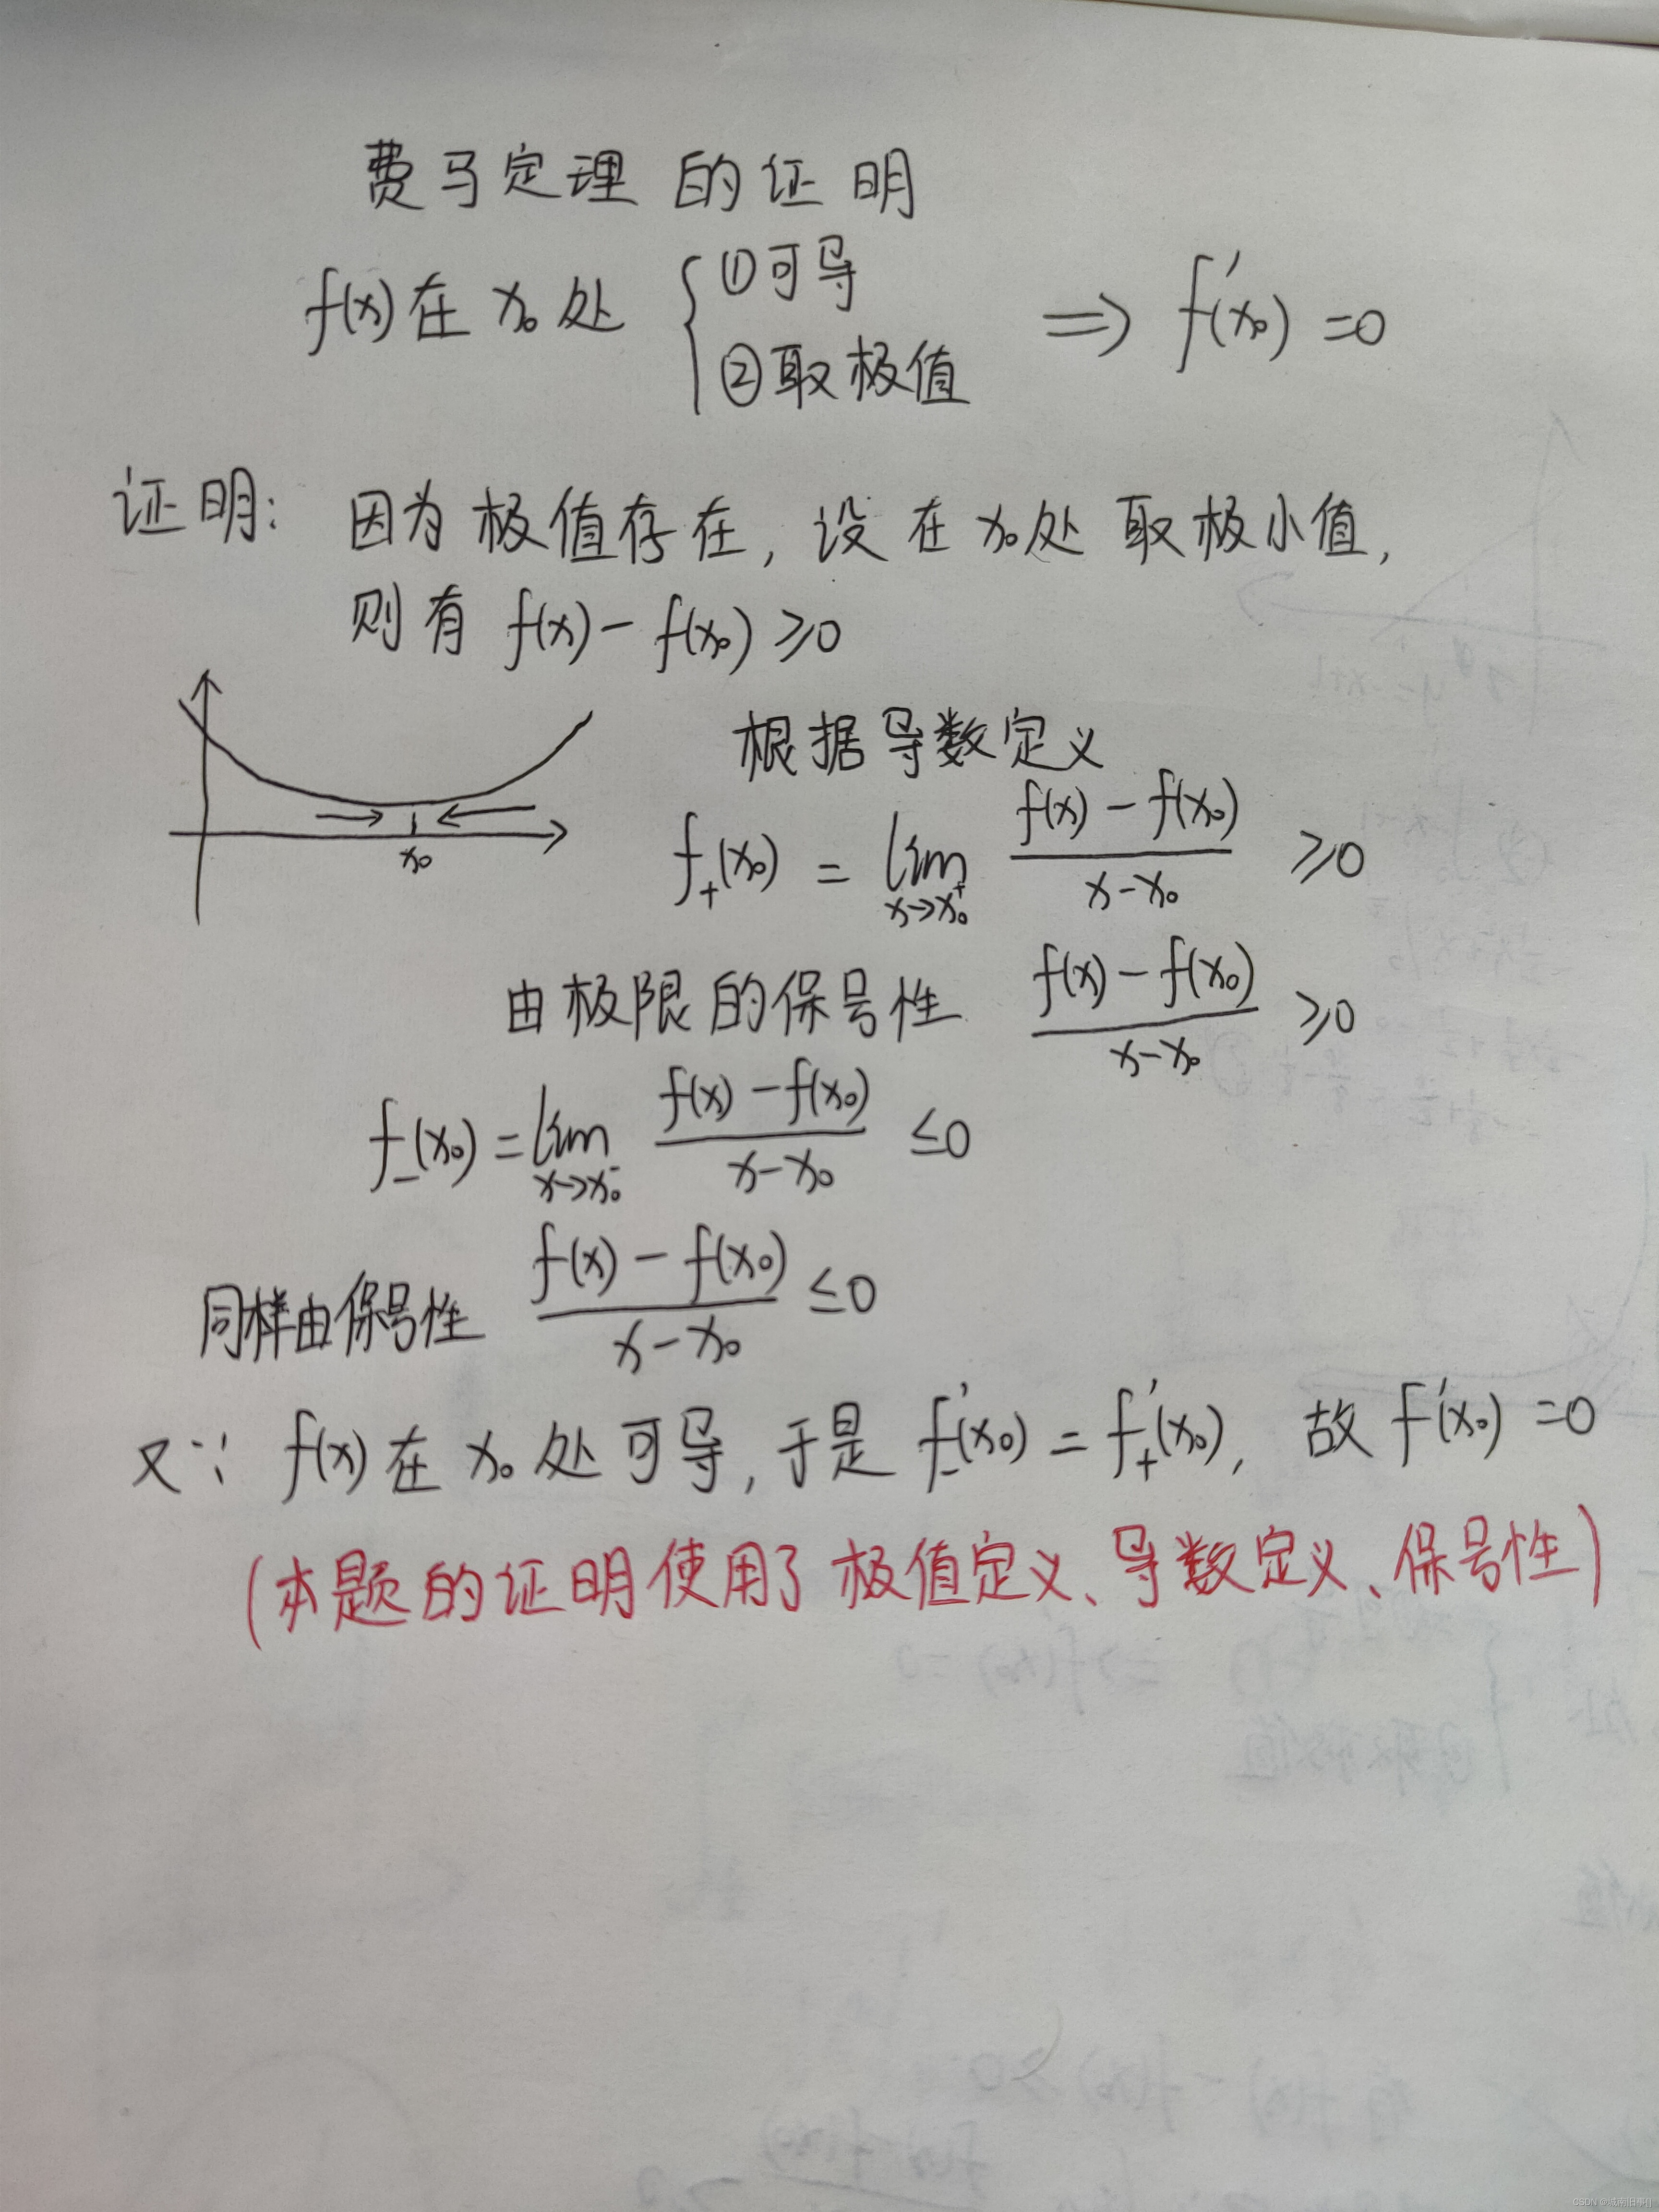 费马定理的证明
f(x)在x₀处 { ①可导 ②取极值 ⟹ f'(x₀)=0
证明: 因为极值存在, 设在x₀处取极小值,
则有 f(x)-f(x₀)≥0
x₀
根据导数定义
f₊(x₀) = lim_{x→x₀⁺} (f(x)-f(x₀))/(x-x₀) ≥0
由极限的保号性 (f(x)-f(x₀))/(x-x₀) ≥0
f₋(x₀) = lim_{x→x₀⁻} (f(x)-f(x₀))/(x-x₀) ≤0
同样由保号性 (f(x)-f(x₀))/(x-x₀) ≤0
又∵ f(x)在x₀处可导, 于是 f₋'(x₀) = f₊'(x₀), 故 f'(x₀)=0
(本题的证明使用了极值定义、导数定义、保号性)